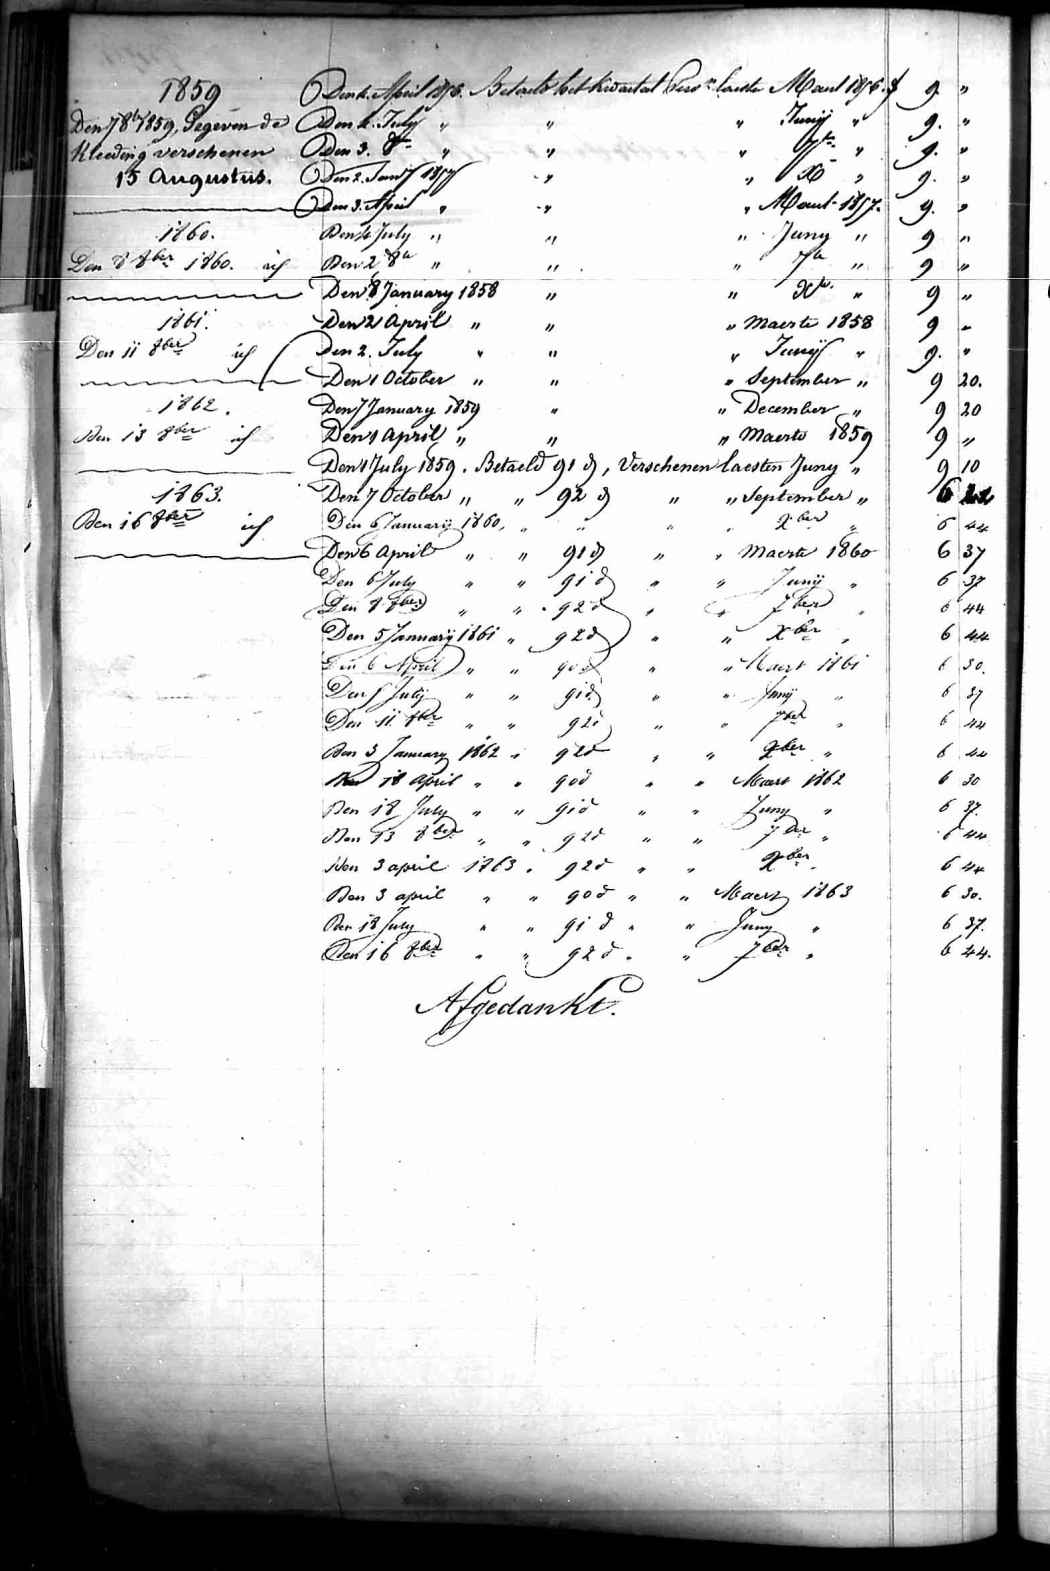 1859
Den 7 8b 1859, Gegeven de
Kleeding verschenen
15 Augustus.
1860.
Den 8 8ber 1860.
1861.
Den 11 8ber
1862.
Den 13 8ber
1863.
Den 16 8ber
Den 2. April 1856. Betaeld het kwartal laeste Maert 1856. f 9 "
Den 2. July " " " Junÿ " 9. "
Den 3. 8br " " " 7br " 9. "
Den 2. Janÿ 1857 " " Xb " 9. "
Den 3. April " " " Maert 1857. 9. "
Den 4 July " " " Juny " 9 "
Den 2 8br " " " 7br " 9 "
Den 8 January 1858 " " Xbr. " 9 "
Den 2 April " " " Maerte 1858 9 "
Den 2. July " " " Junÿ " 9. "
Den 1 October " " " September " 9 20.
Den 7 January 1859 " " December " 9 20
Den 1 April " " " Maerte 1859 9 "
Den 1 July 1859. Betaeld 91 d, Verschenen laesten Juny " 9 10
Den 7 October " " 92 d " " September " 6
Den 6 Januarÿ 1860, " " " " Xber " 6 44
Den 6 April " " 91 d " " Maerte 1860 6 37
Den 6 July " " 91 d " " Junÿ " 6 37
Den 8 8ber " " 92 d " " 7ber " 6 44
Den 5 Januarÿ 1861 " 92 d " " Xber " 6 44
Den 6 April " " 90 d " " Maert 1861 6 30.
Den 5 Julÿ " " 91 d " " Junÿ " 6 37
Den 11 8ber " " 92 d " " 7ber " 6 44
Den 3 January 1862 " 92 d " " Xber " 6 44
Den 18 April " " 90 d " " Maert 1862 6 30
Den 18 July " " 91 d " " Juny " 6 37.
Den 13 8ber " " 92 d " " 7ber " 6 44
Den 3 april 1863 " 92 d " " Xber " 6 44
Den 3 april " " 90 d " " Maert 1863 6 30.
Den 18 July " " 91 d " " Juny " 6 37.
Den 16 8ber " " 92 d " " 7ber " 6 44.
Afgedankt.